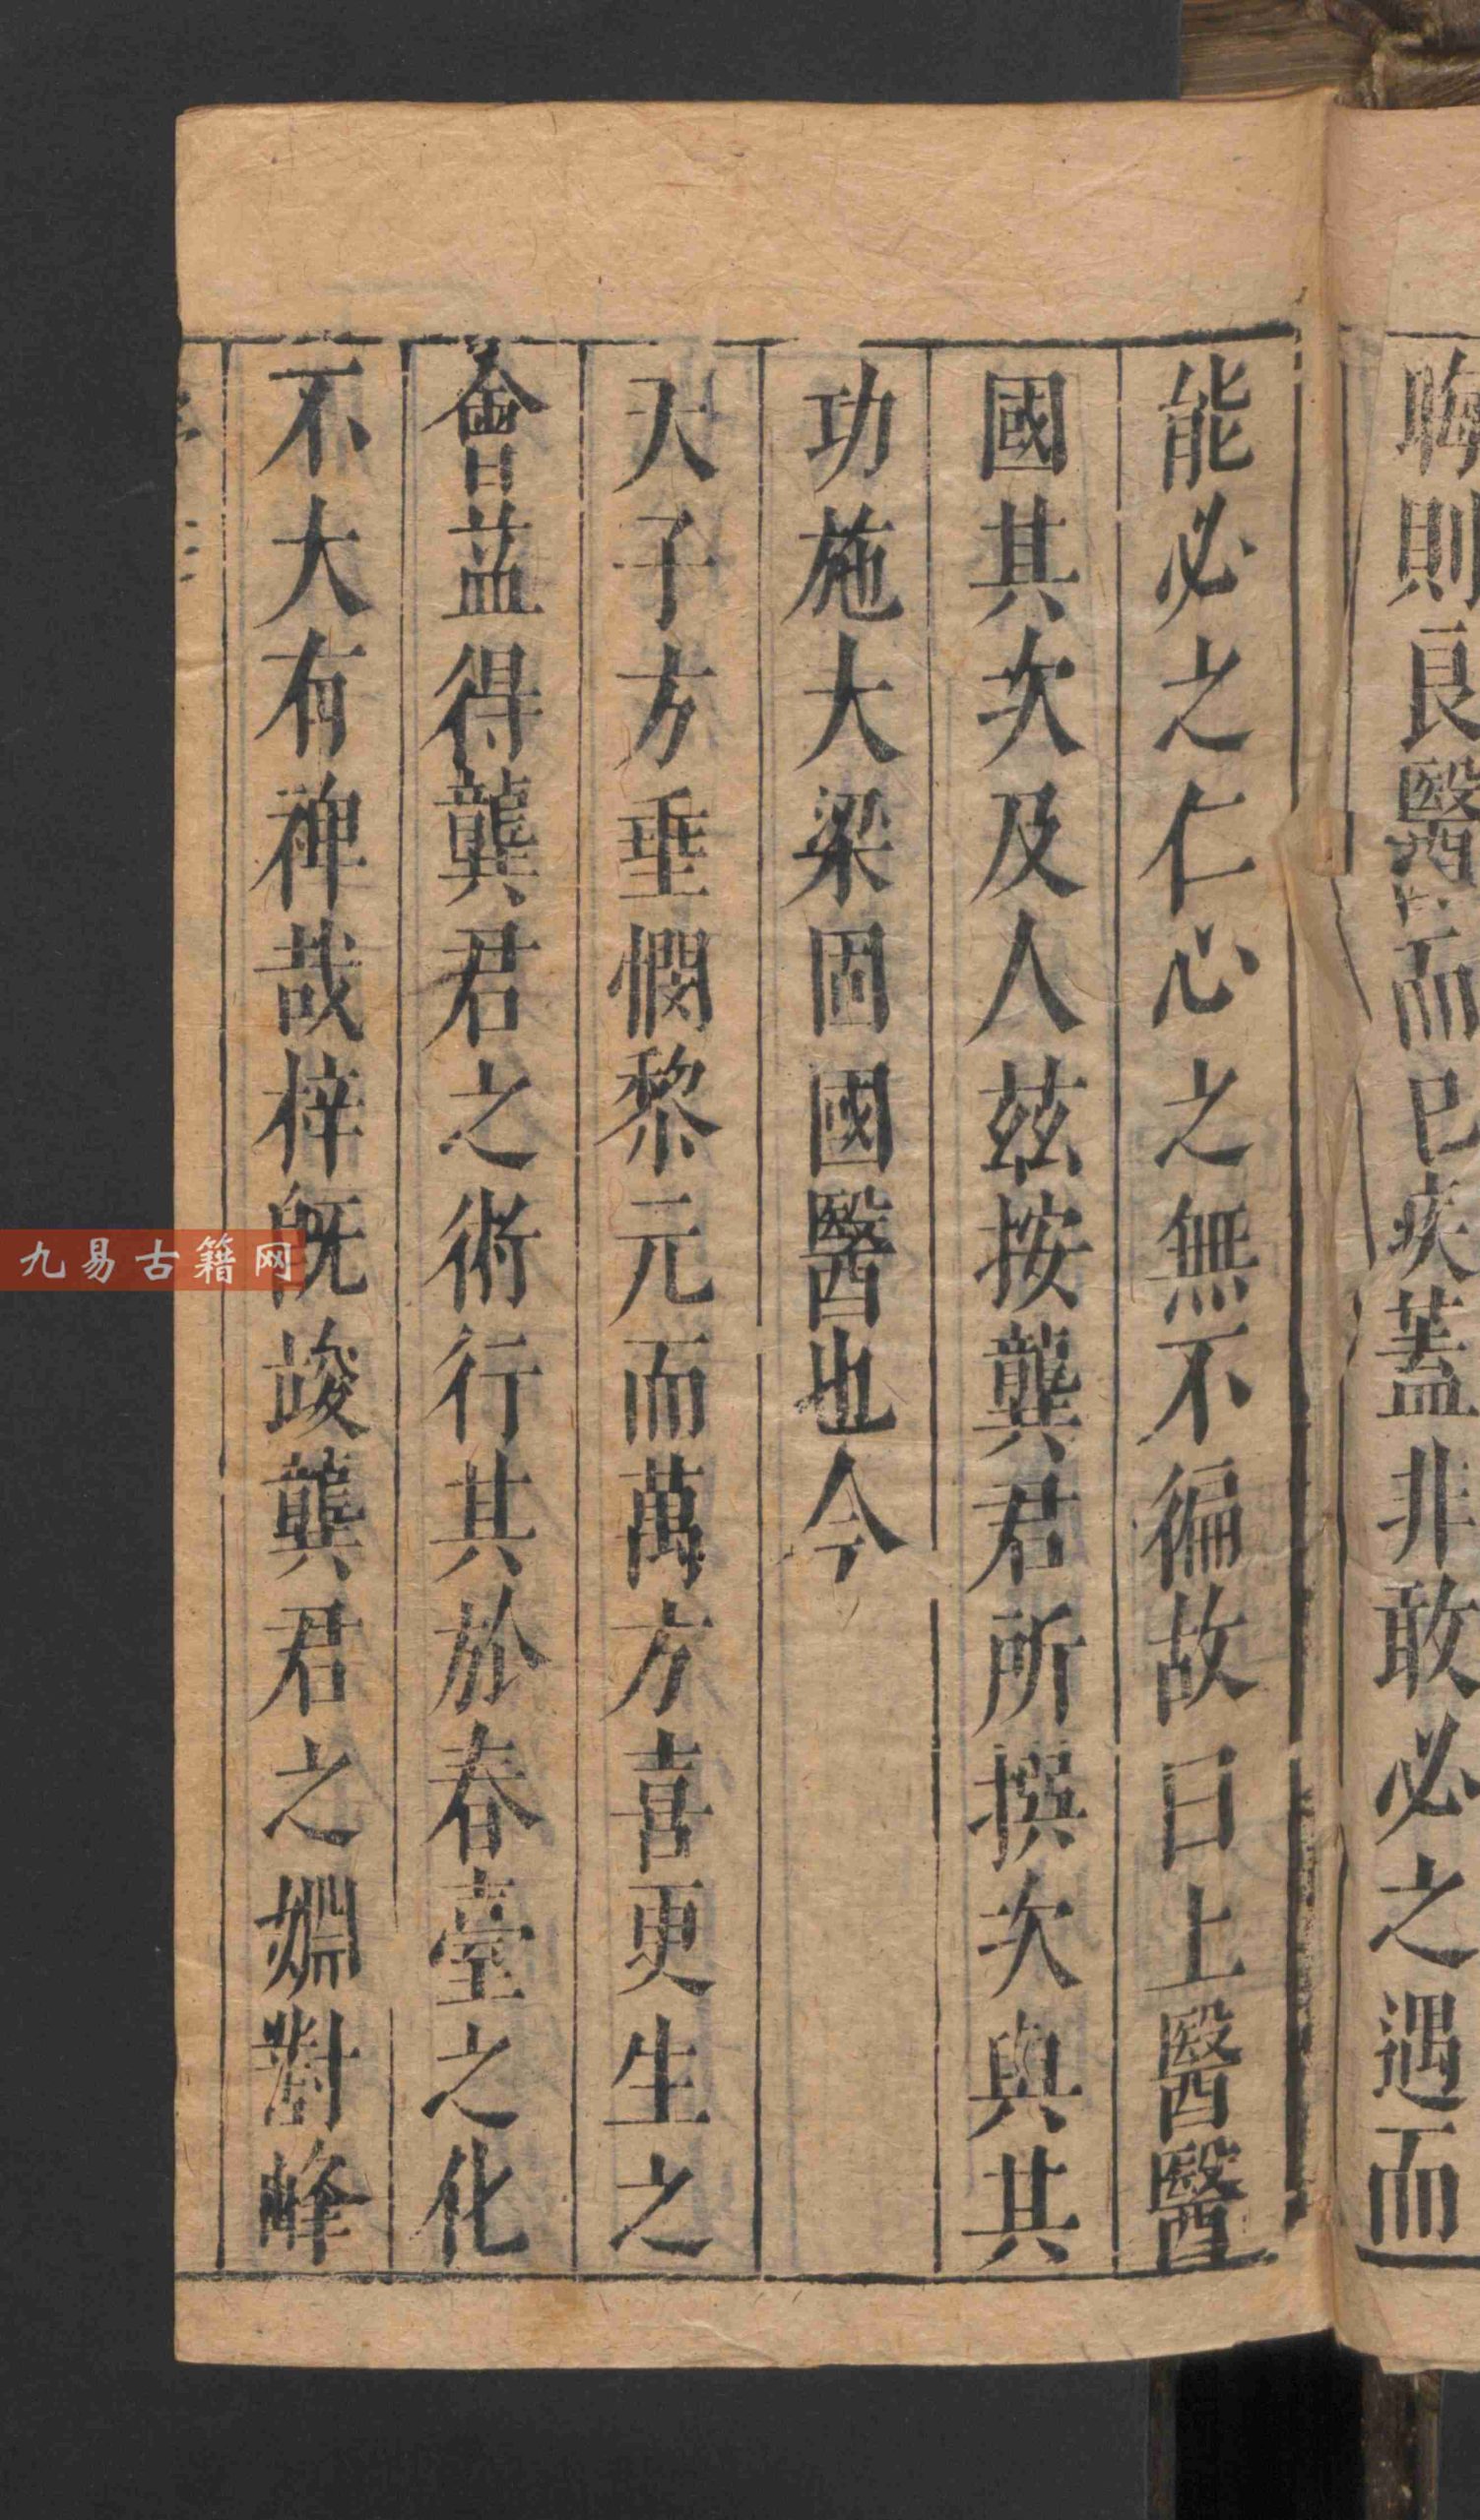 晦則良醫而已疾蓋非敢必之遇而
能必之仁心之無不徧故曰上醫醫
國其次及人茲按龔君所撰次與其
功施大梁固國醫也今
天子方垂憫黎元而萬方喜更生之
會日葢得龔君之術行其於春臺之化
不大有裨哉梓既竣龔君之婣對峰
九易古籍网